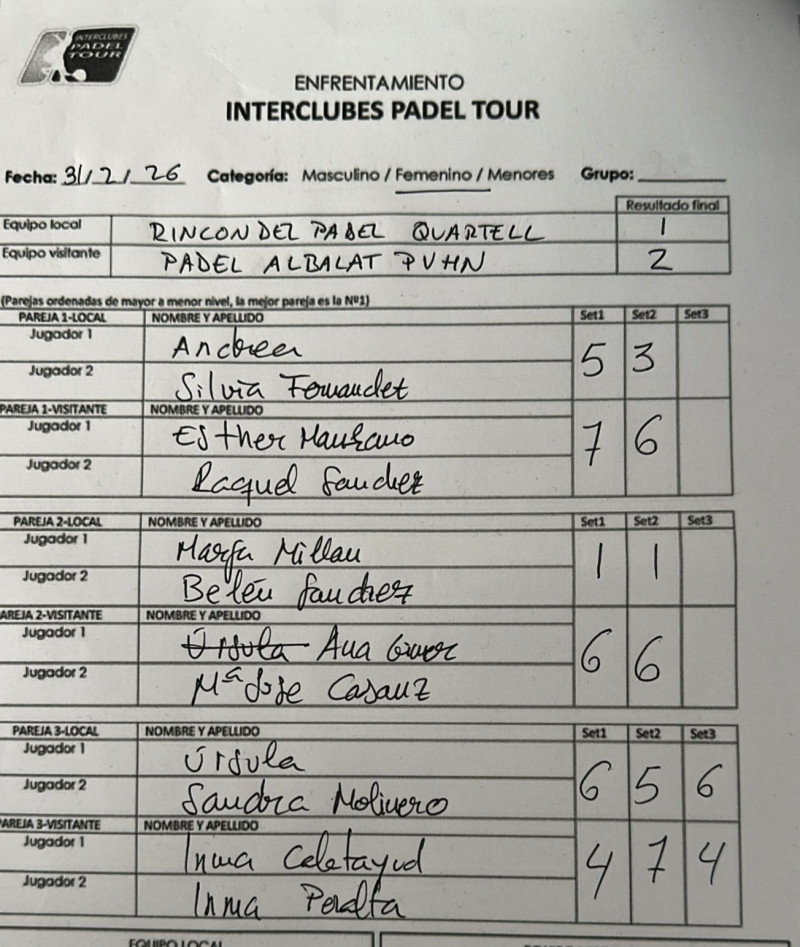 INTERCLUBES
PADEL
TOUR
ENFRENTAMIENTO
INTERCLUBES PADEL TOUR
Fecha: 31/2/26 Categoría: Masculino / Femenino / Menores Grupo:
Resultado final
Equipo local RINCON DEL PADEL QUARTELL 1
Equipo visitante PADEL ALBALAT PVHN 2
(Parejas ordenadas de mayor a menor nivel, la mejor pareja es la Nº1)
PAREJA 1-LOCAL NOMBRE Y APELLIDO Set1 Set2 Set3
Jugador 1 Andrea 5 3
Jugador 2 Silvia Fernandez
PAREJA 1-VISITANTE NOMBRE Y APELLIDO
Jugador 1 Esther Manzano 7 6
Jugador 2 Raquel Sanchez
PAREJA 2-LOCAL NOMBRE Y APELLIDO Set1 Set2 Set3
Jugador 1 Marfa Millan 1 1
Jugador 2 Belén Sanchez
AREJA 2-VISITANTE NOMBRE Y APELLIDO
Jugador 1 Úrsula Ana 6 6
Jugador 2 Mª Jose Casauz
PAREJA 3-LOCAL NOMBRE Y APELLIDO Set1 Set2 Set3
Jugador 1 Úrsula 6 5 6
Jugador 2 Sandra Molinero
AREJA 3-VISITANTE NOMBRE Y APELLIDO
Jugador 1 Inma Calatayud 4 7 4
Jugador 2 Inma Peralta
EQUIPO LOCAL